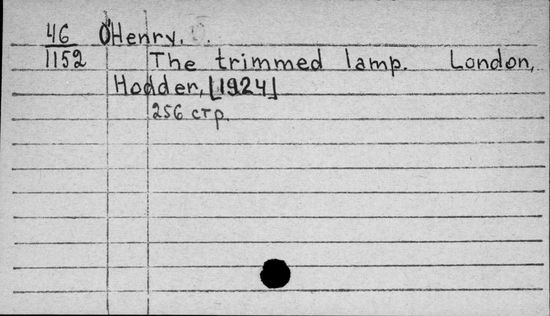 46 O'Henry.
1152 The trimmed lamp. London,
Hodder, [1924]
256 стр.